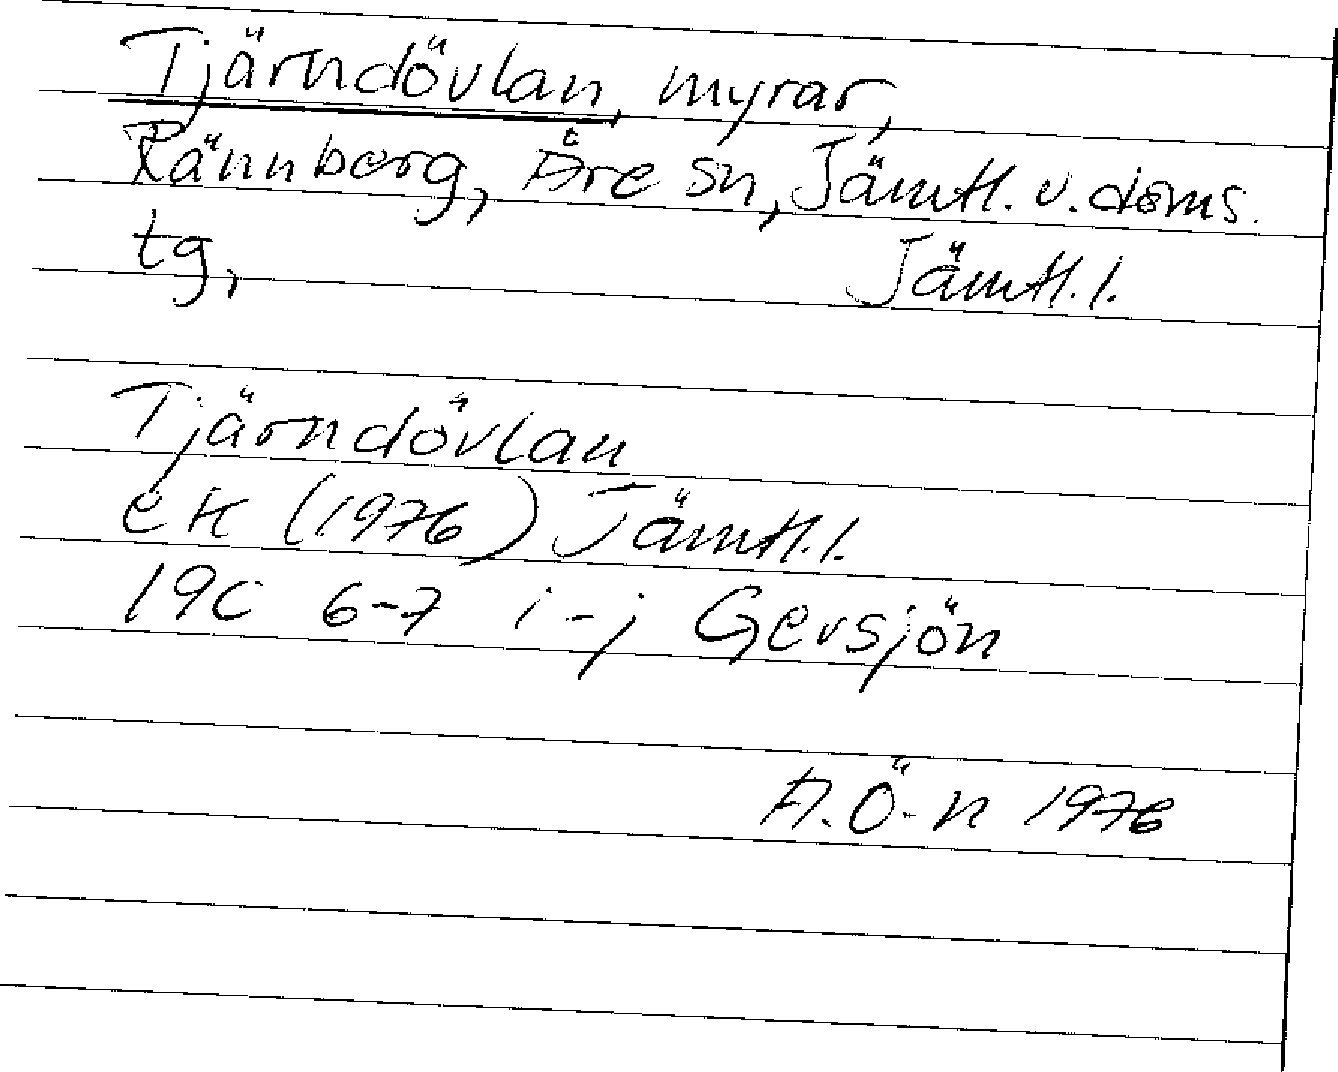 Tjärndövlan, myrar,
Rännberg, Åre sn, Jämtl. v. doms.
tg,
Jämtl. l.
Tjärndövlan
ek (1976) Jämtl. l.
19C 6-7 i-j Gevsjön
A.Ö-n 1976